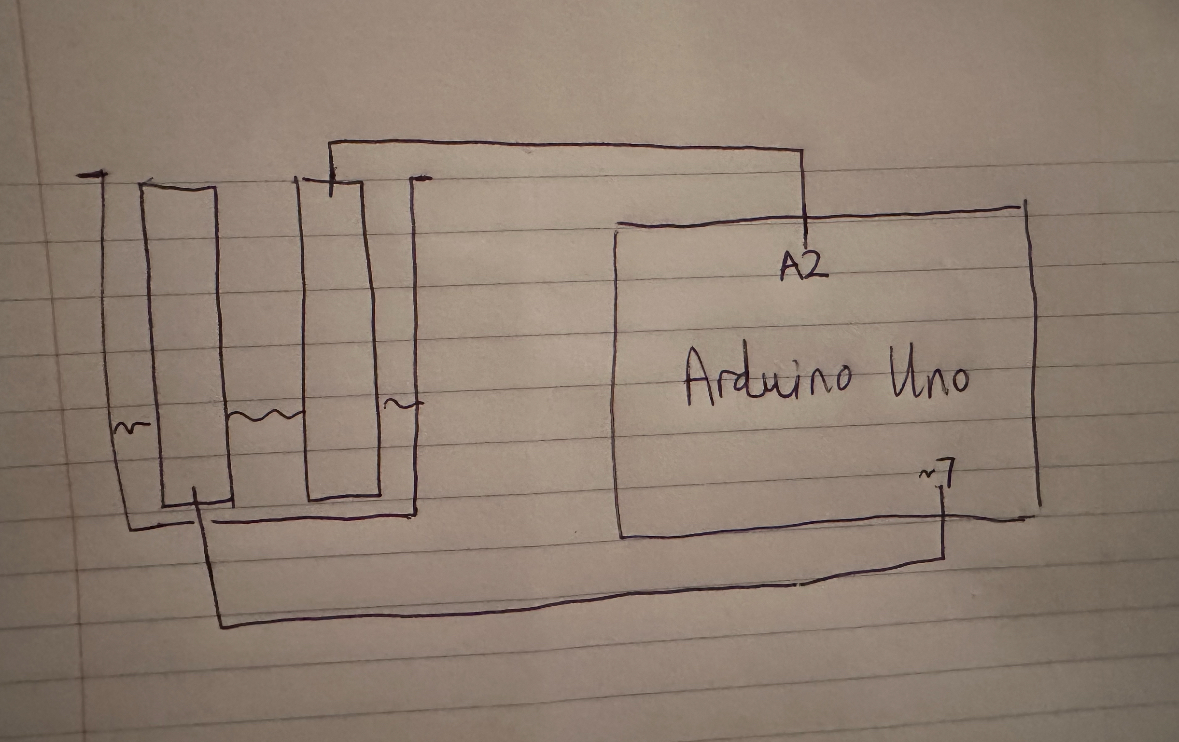 A2
Arduino Uno
~7